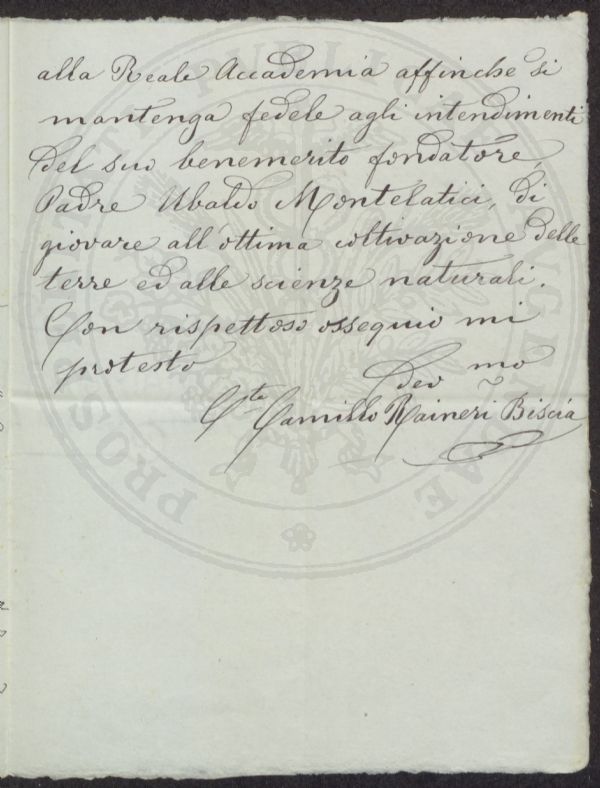 alla Reale Accademia affinche si
mantenga fedele agli intendimenti
del suo benemerito fondatore,
Padre Ubaldo Montelatici, di
giovare all'ottima coltivazione delle
terre ed alle scienze naturali.
Con rispettoso ossequio mi
protesto
Dev mo
Cte Camillo Raineri Biscia